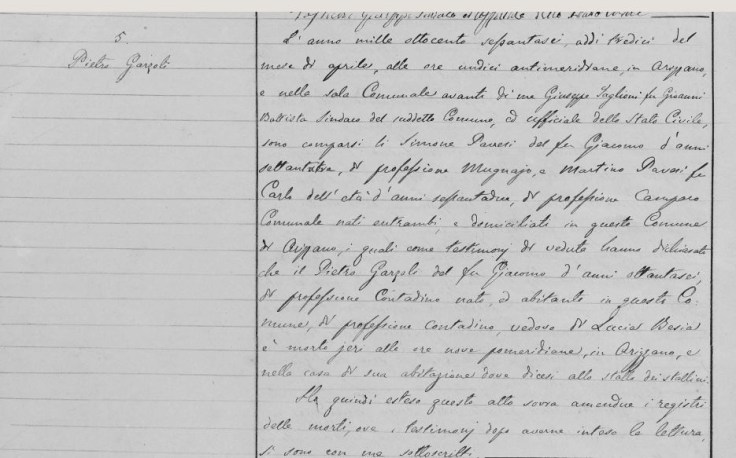 Giuseppe Sindaco ed Uffiziale dello Stato Civile
5.
Pietro Garzoli
L'anno mille ottocento sessantasei, addì tredici del
mese di aprile, alle ore undici antimeridiane, in Arizzano,
e nella sala Comunale avanti di me Giuseppe Taglioni fu Giovanni
Battista Sindaco del suddetto Comune, ed uffiziale dello Stato Civile,
sono comparsi li Simone Pavesi del fu Giacomo d'anni
settantatre, di professione Mugnajo, e Martino Pavesi fu
Carlo dell'età d'anni sessantadue, di professione Camparo
Comunale nati entrambi, e domiciliati in questo Comune
di Arizzano, i quali come testimonj di veduta hanno dichiarato
che il Pietro Garzoli del fu Giacomo d'anni ottantasei,
di professione Contadino nato, ed abitante in questo Co-
mune, di professione contadino, vedovo di Lucia Besia
è morto jeri alle ore nove pomeridiane, in Arizzano, e
nella casa di sua abitazione dove dicesi alle stalle dei stallini.
Ho quindi esteso questo atto sovra amendue i registri
delle morti, ove i testimonj dopo averne inteso la lettura,
si sono con me sottoscritti.